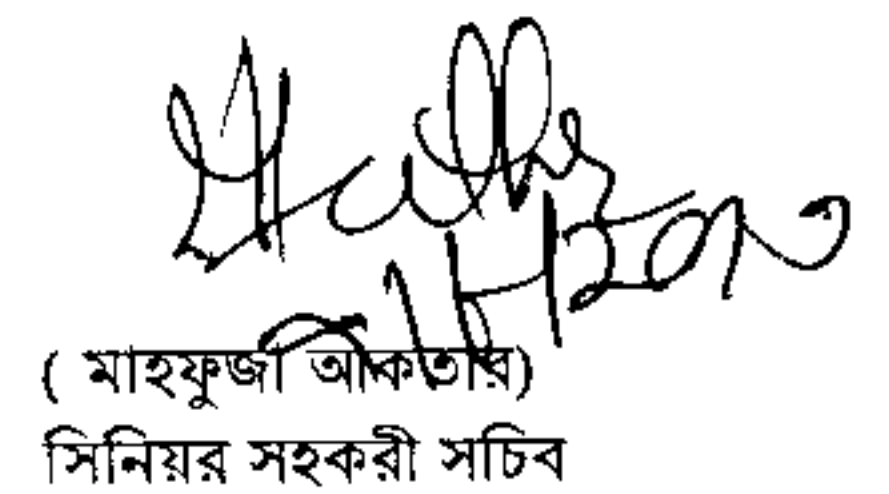 ( মাহফুজা আকতার)
সিনিয়র সহকরী সচিব